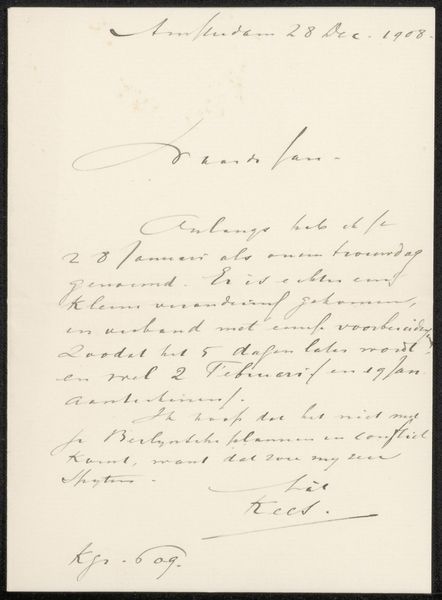 Amsterdam 28 Dec. 1908.
Waarde Jan -
Onlangs heb ik je
28 Januari als onzen trouwdag
genoemd. Er is echter een
kleine verandering gekomen,
in verband met eenige voorbereiding
Zoodat het 5 dagen later wordt
en wel 2 Februarij en 19 Jan.
aanteekening.
Ik hoop dat het niet met
je Berlijnsche plannen in conflict
komt, want dat zou mij zeer
spijten.
Kees.
Kgr. 609.